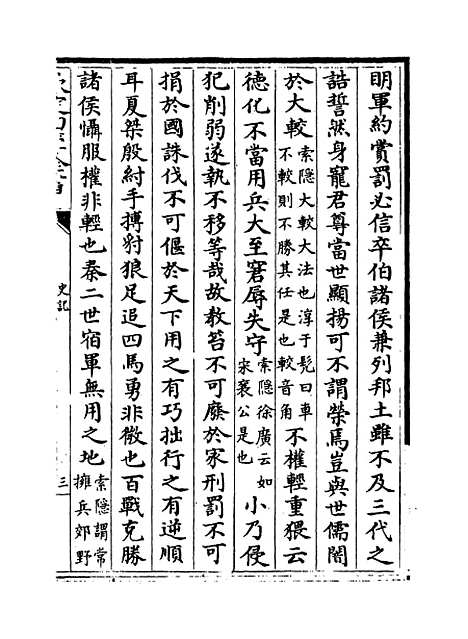 明軍約賞罰必信卒伯諸侯兼列邦土雖不及三代之
誥誓然身寵君尊當世顯揚可不謂榮焉豈與世儒闇
於大較索隱大較大法也淳于髡曰車不較則不勝其任是也較音角不權輕重猥云
德化不當用兵大至窘辱失守索隱徐廣云如宋襄公是也小乃侵
犯削弱遂執不移等哉故教笞不可廢於家刑罰不可
捐於國誅伐不可偃於天下用之有巧拙行之有逆順
耳夏桀殷紂手搏豺狼足追四馬勇非微也百戰克勝
諸侯懾服權非輕也秦二世宿軍無用之地索隱謂常擁兵郊野
史記
三